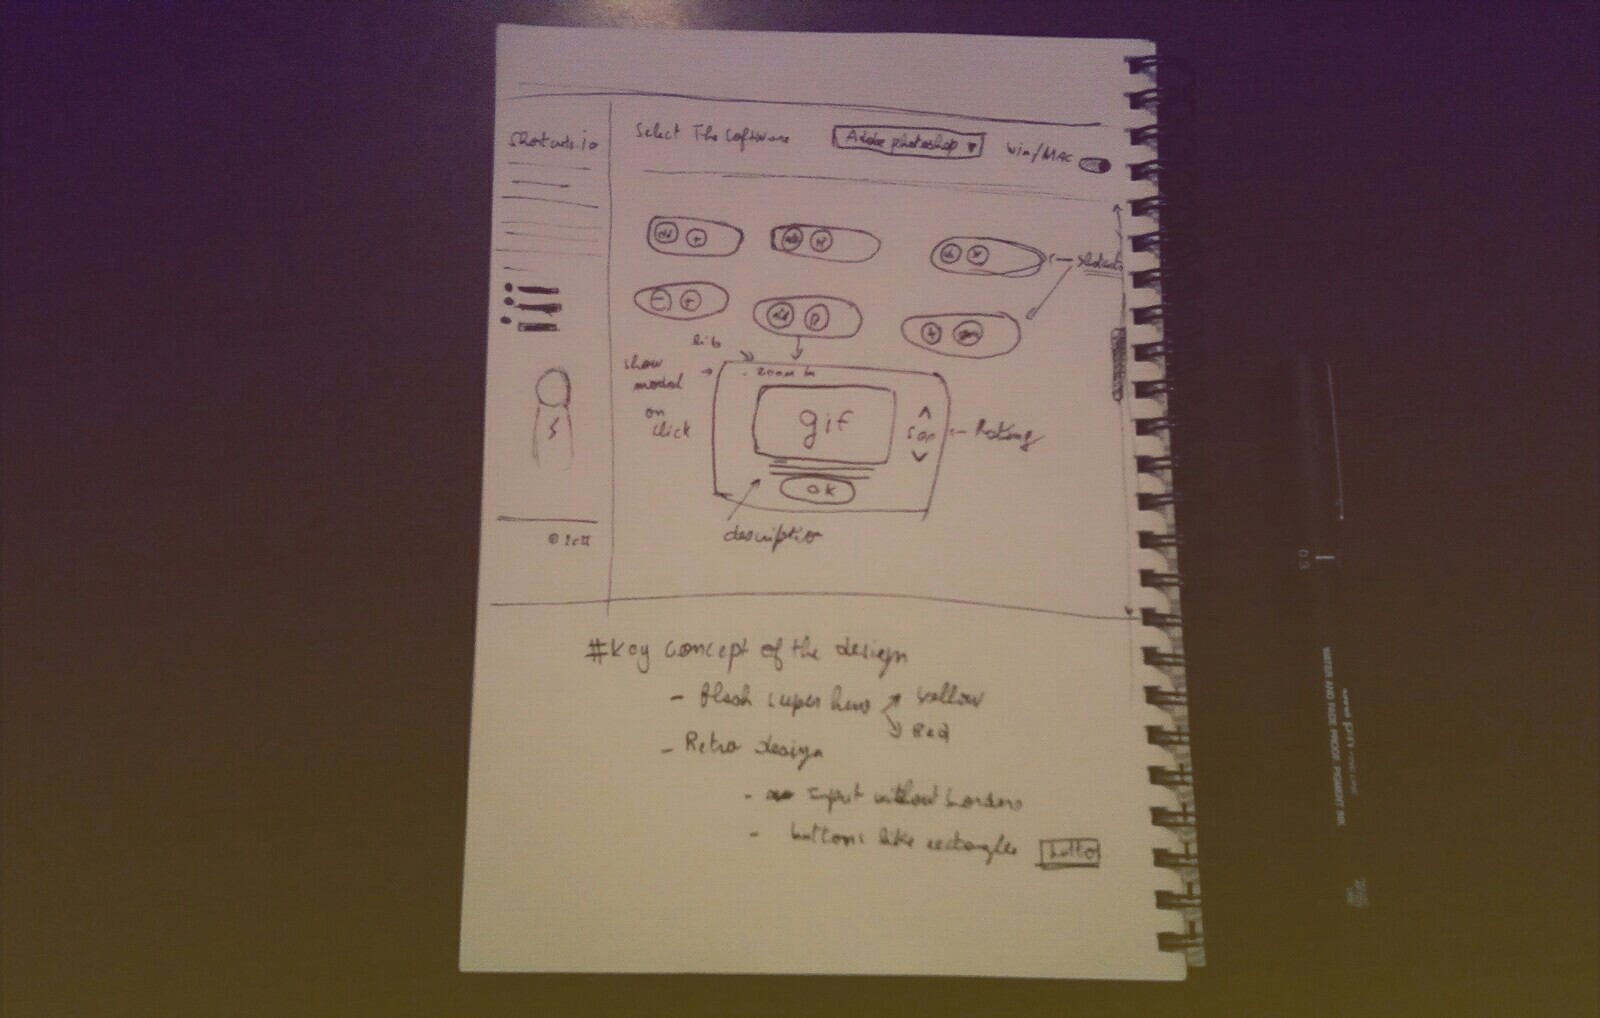 Shortcuts.io
Select The software
Adobe photoshop ▼
Win/MAC
+
+
show
modal
on
click
zoom in
gif
OK
Rating
description
#key concept of the design
- flash super hero
Yellow
Red
- Retro design
- Input without borders
- buttons like rectangles
WATER AND FADE PROOF, PIGMENT INK
0.3